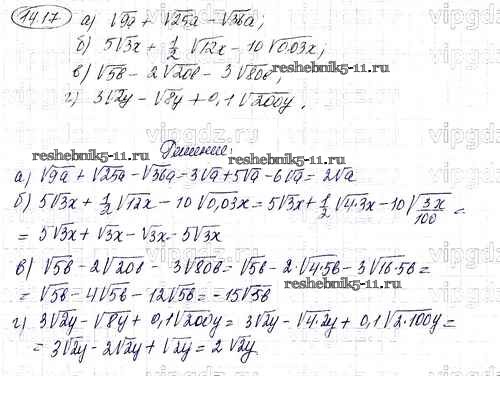 14.17 а) √9a + √25a - √36a;
б) 5√3x + 1/2 √12x - 10√0,03x;
в) √5b - 2√20b - 3√80b;
reshebnik5-11.ru
г) 3√2y - √8y + 0,1√200y.
vipgdz.ru
reshebnik5-11.ru
Решение:
а) √9a + √25a - √36a = 3√a + 5√a - 6√a = 2√a
б) 5√3x + 1/2 √12x - 10√0,03x = 5√3x + 1/2 √4·3x - 10√3x/100 =
= 5√3x + √3x - √3x = 5√3x
в) √5b - 2√20b - 3√80b = √5b - 2·√4·5b - 3√16·5b =
= √5b - 4√5b - 12√5b = -15√5b
reshebnik5-11.ru
г) 3√2y - √8y + 0,1√200y = 3√2y - √4·2y + 0,1√2·100y =
= 3√2y - 2√2y + √2y = 2√2y